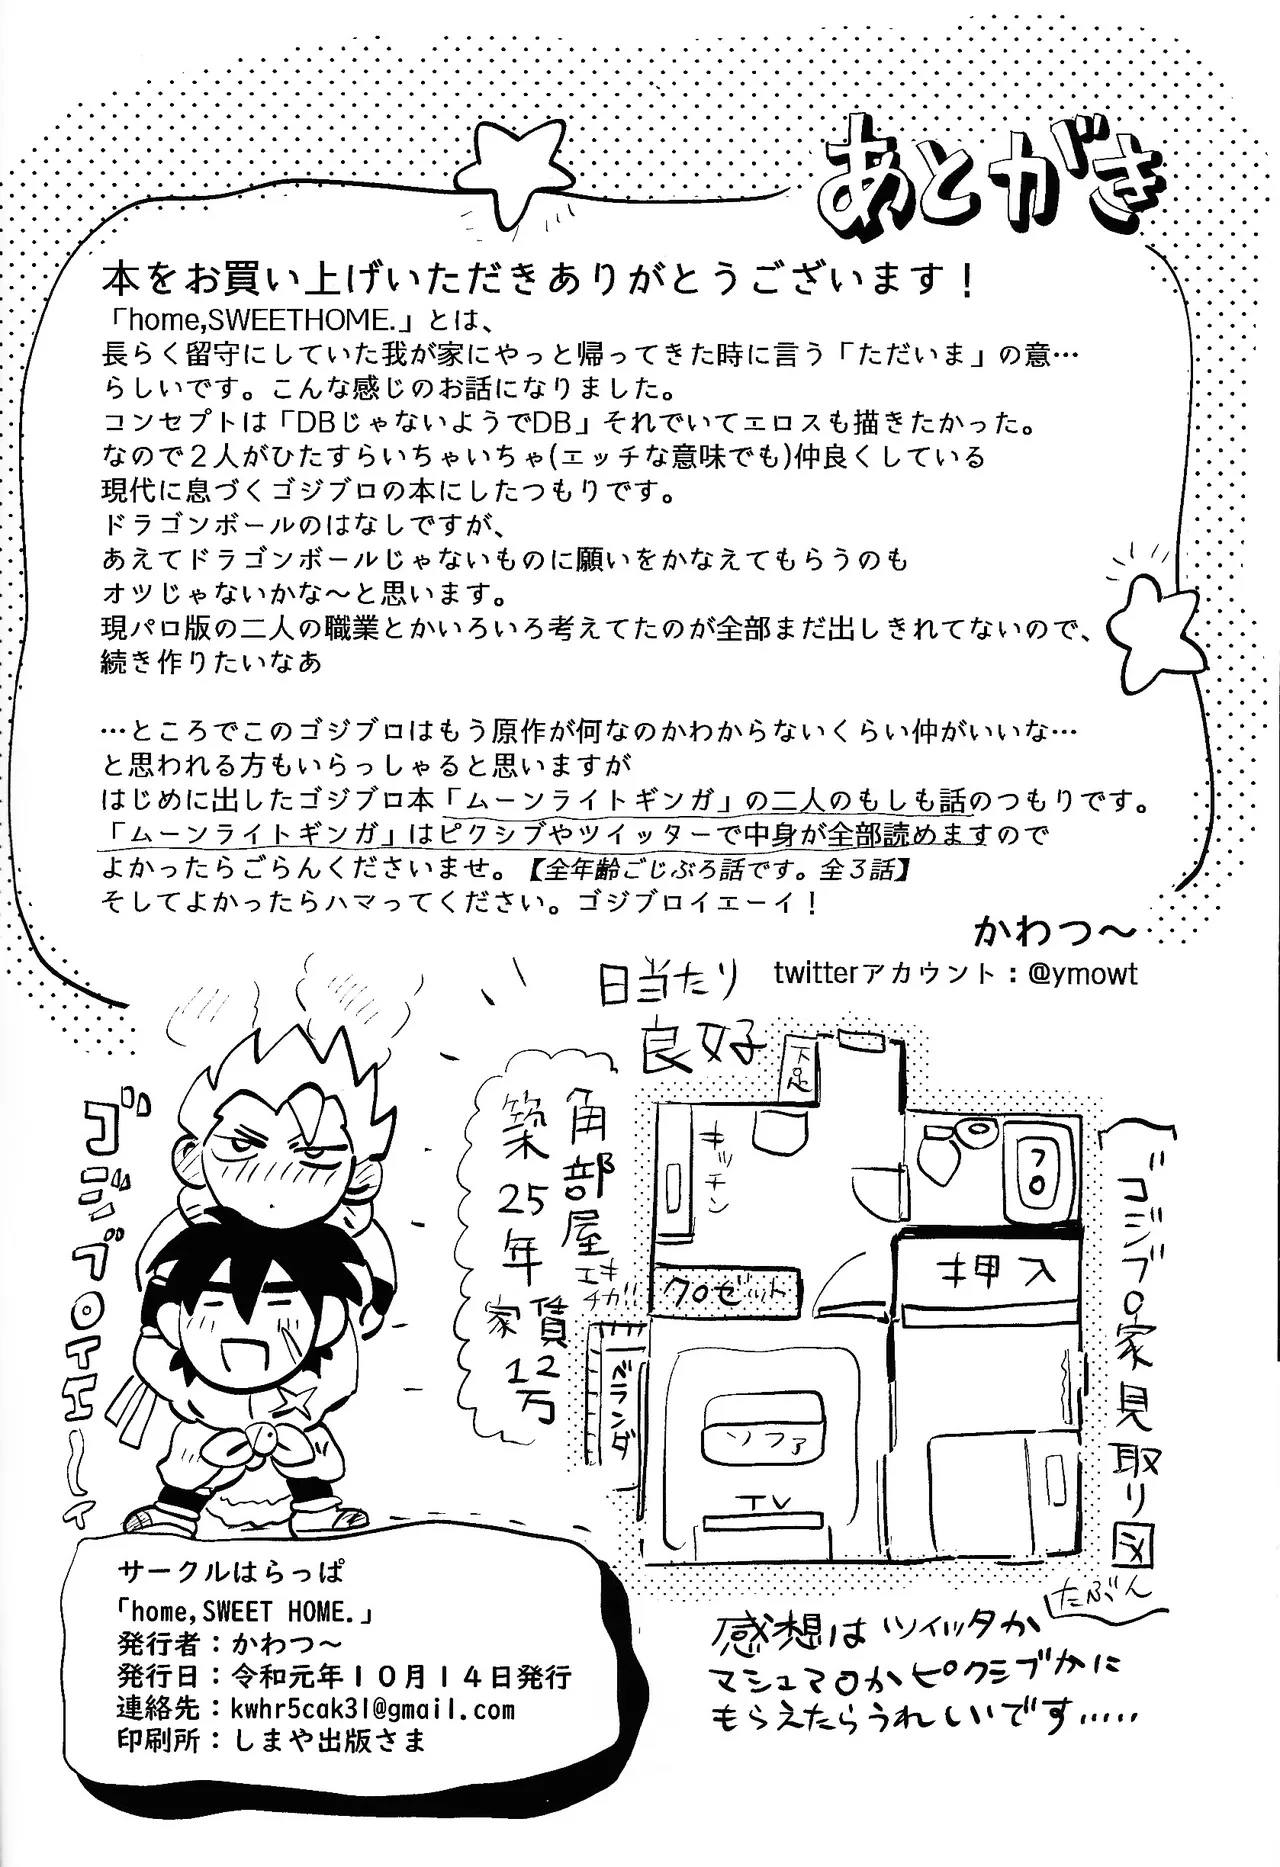 あとがき
本をお買い上げいただきありがとうございます！
「home,SWEETHOME.」とは、
長らく留守にしていた我が家にやっと帰ってきた時に言う「ただいま」の意…
らしいです。こんな感じのお話になりました。
コンセプトは「DBじゃないようでDB」それでいてエロスも描きたかった。
なので２人がひたすらいちゃいちゃ(エッチな意味でも)仲良くしている
現代に息づくゴジブロの本にしたつもりです。
ドラゴンボールのはなしですが、
あえてドラゴンボールじゃないものに願いをかなえてもらうのも
オツじゃないかな〜と思います。
現パロ版の二人の職業とかいろいろ考えてたのが全部まだ出しきれてないので、
続き作りたいなあ
…ところでこのゴジブロはもう原作が何なのかわからないくらい仲がいいな…
と思われる方もいらっしゃると思いますが
はじめに出したゴジブロ本「ムーンライトギンガ」の二人のもしも話のつもりです。
「ムーンライトギンガ」はピクシブやツイッターで中身が全部読めますので
よかったらごらんくださいませ。【全年齢ごじぶろ話です。全３話】
そしてよかったらハマってください。ゴジブロイエーイ！
かわつ〜
twitterアカウント：@ymowt
日当たり
良好
角部屋
エキチカ!!
築25年
家賃12万
ゴジブロイエーイ
下足
キッチン
フロ
押入
クロゼット
ベランダ
ソファ
TV
ゴジブロ家見取り図
たぶん
感想はツイッタか
マシュマロかピクシブかに
もらえたらうれしいです.....
サークルはらっぱ
「home,SWEET HOME.」
発行者：かわつ〜
発行日：令和元年１０月１４日発行
連絡先：kwhr5cak3l@gmail.com
印刷所：しまや出版さま